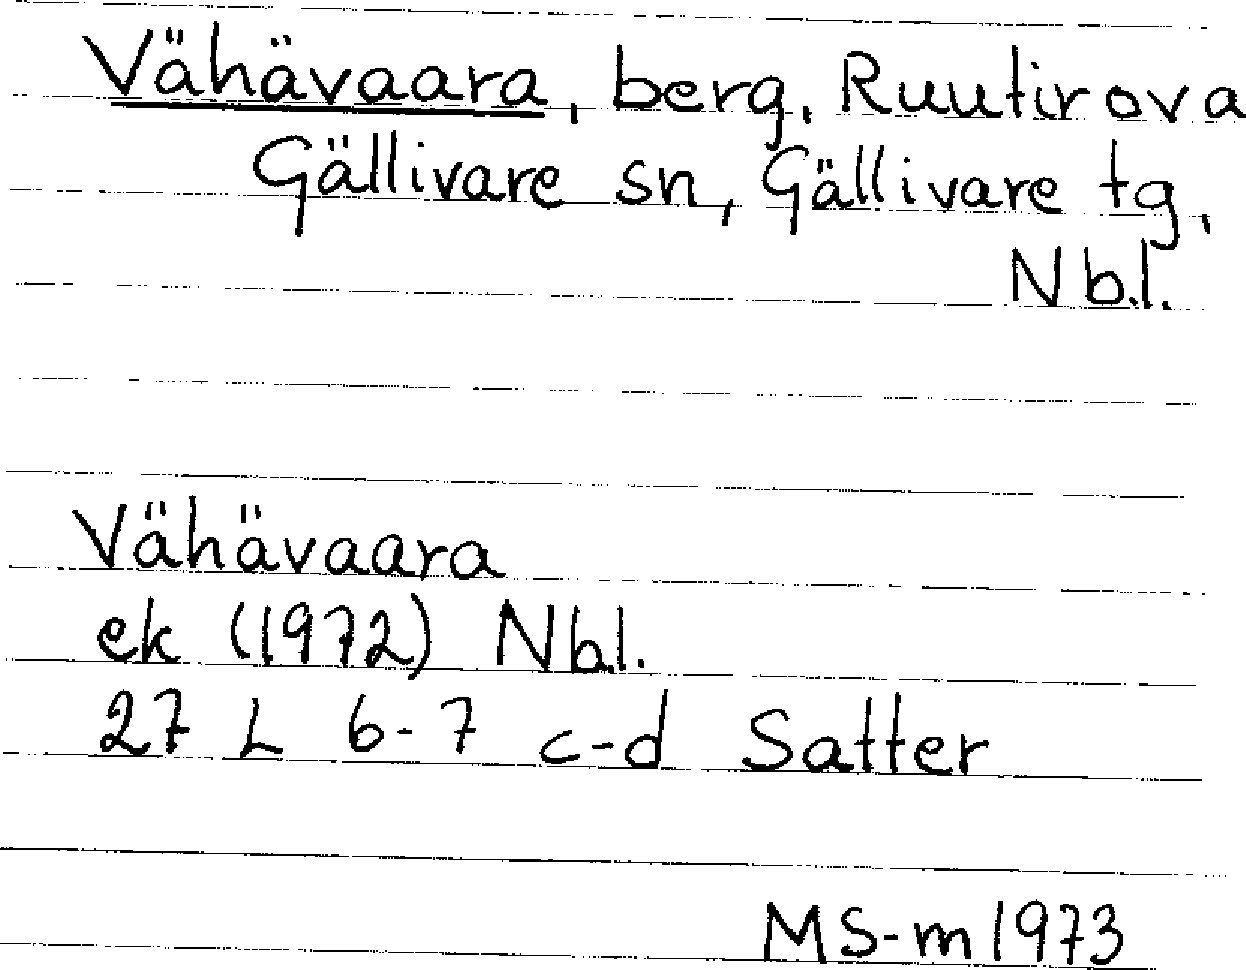 Vähävaara, berg, Ruutirova
Gällivare sn, Gällivare tg,
Nb.l.
Vähävaara
ek (1972) Nb.l.
27 L 6-7 c-d Satter
MS-m 1973